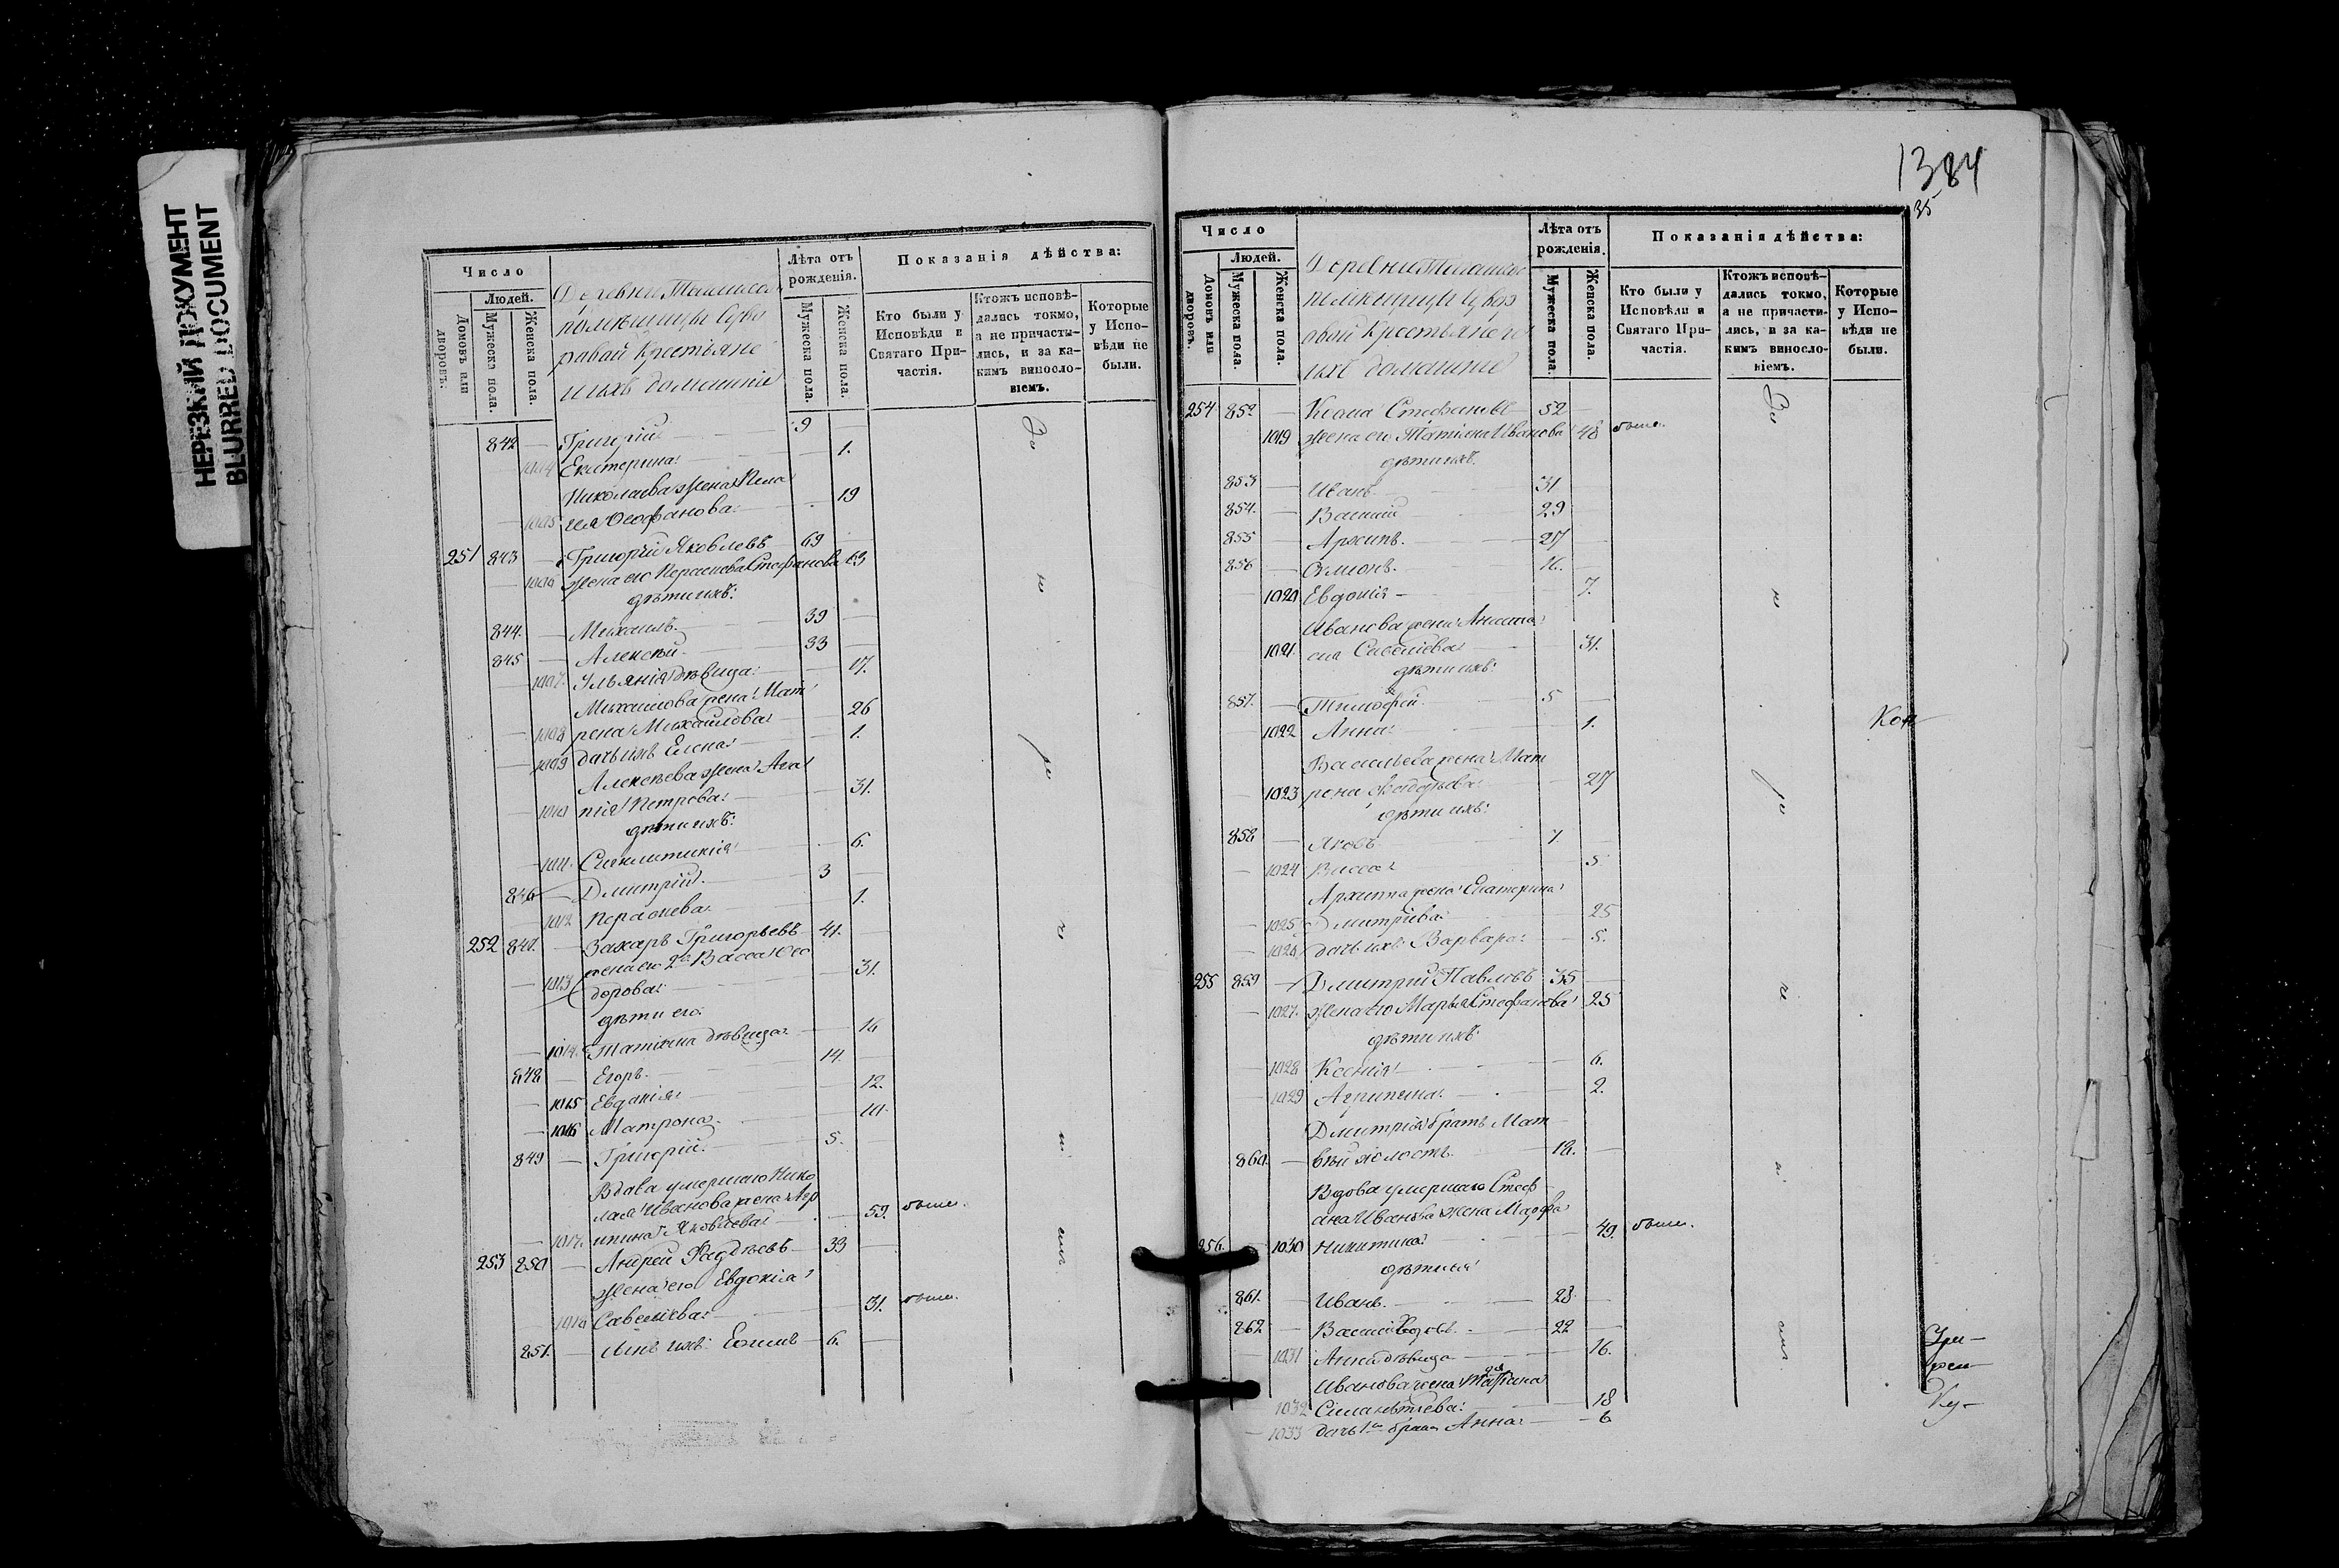 НЕРЕЗКИЙ ДОКУМЕНТ
BLURRED DOCUMENT
Число
Людей.
Домовъ или дворовъ.
Мужеска пола.
Женска пола.
Деревни
помѣщицы Суво
ровай Крестьяне
и ихъ домашніе
Лѣта отъ рожденія.
Мужеска пола.
Женска пола.
Показанія дѣйства:
Кто были у Исповѣди и Святаго Причастія.
Ктожъ исповѣдались токмо, а не причастились, и за какимъ винословіемъ.
Которые у Исповѣди не были.
842 — Григорій 9
1004 Екатерина 1.
Николаева жена Пела
1005 гея Ѳеофанова 19
251 843 — Григорій Яковлевъ 69
1006 жена его Пераскева Стефанова 63
дѣти ихъ:
844. — Михаилъ. 39
845 — Алексѣй. 33
1007. Ульянія дѣвица 17.
Михаилова жена Мат
1008 рена Михайлова 26
1009 дочь ихъ Елена 1.
Алексѣева жена Ага
1010 пія Петрова 31.
дѣти ихъ:
1011. Синклитикія 6.
846 — Дмитрій. 3
1012 Пераскева 1.
252 847. — Захаръ Григорьевъ 41.
жена его 2я Васса Ѳео
1013 дорова 31.
дѣти его
1014. Татіяна дѣвица 16
848 — Егоръ. 14.
1015 Евдокія 12.
1016 Матрона 10.
849 — Григорій. 5.
Вдова умершаго Нико
лая Иванова жена Агр
1017. ипина Яковлева 59. были.
253 850 — Андрей Фадѣевъ 33
жена его Евдокія
1018 Савельева 31. были.
851. — сынъ ихъ: Ефимъ 6.
1384
35
Число
Людей.
Домовъ или дворовъ.
Мужеска пола.
Женска пола.
Деревни
помѣщицы Сувор
овой Крестьяне и
ихъ домашніе
Лѣта отъ рожденія.
Мужеска пола.
Женска пола.
Показанія дѣйства:
Кто были у Исповѣди и Святаго Причастія.
Ктожъ исповѣдались токмо, а не причастились, и за какимъ винословіемъ.
Которые у Исповѣди не были.
254 852 — Козма Стефановъ 52
1019 жена его Татіяна Иванова 48 были.
дѣти ихъ.
853 — Иванъ 31
854. — Василій 29
855 — Архипъ. 27
856 — Симонъ. 16.
1020 Евдокія 7.
Иванова жена Анаста
1021. сія Савельева 31.
дѣти ихъ:
857. — Тимофей. 5
1022 Анна 1.
Васильева жена Мат
1023 рона 27
дѣти ихъ:
858 — Яковъ 7.
1024 Васса 5
Архипа жена Екатерина
1025 Дмитріева 25
1026 дочь ихъ Варвара 5.
255 859 — Дмитрій Павловъ 35
1027. жена его Марья Стефанова 25
дѣти ихъ:
1028 Ксенія 6.
1029 Агрипина 2.
Дмитрія братъ Мат
860. — вѣй холостъ. 18.
Вдова умершаго Стеф
ана Иванова жена Марфа
256. 1030 Никитина 49. были.
дѣти ея
861. — Иванъ. 28
862 — Василій вдовъ. 22
1031 Анна дѣвица 16.
Иванова жена
1032 18
1033 дочь 1го брака Анна 6
Кон